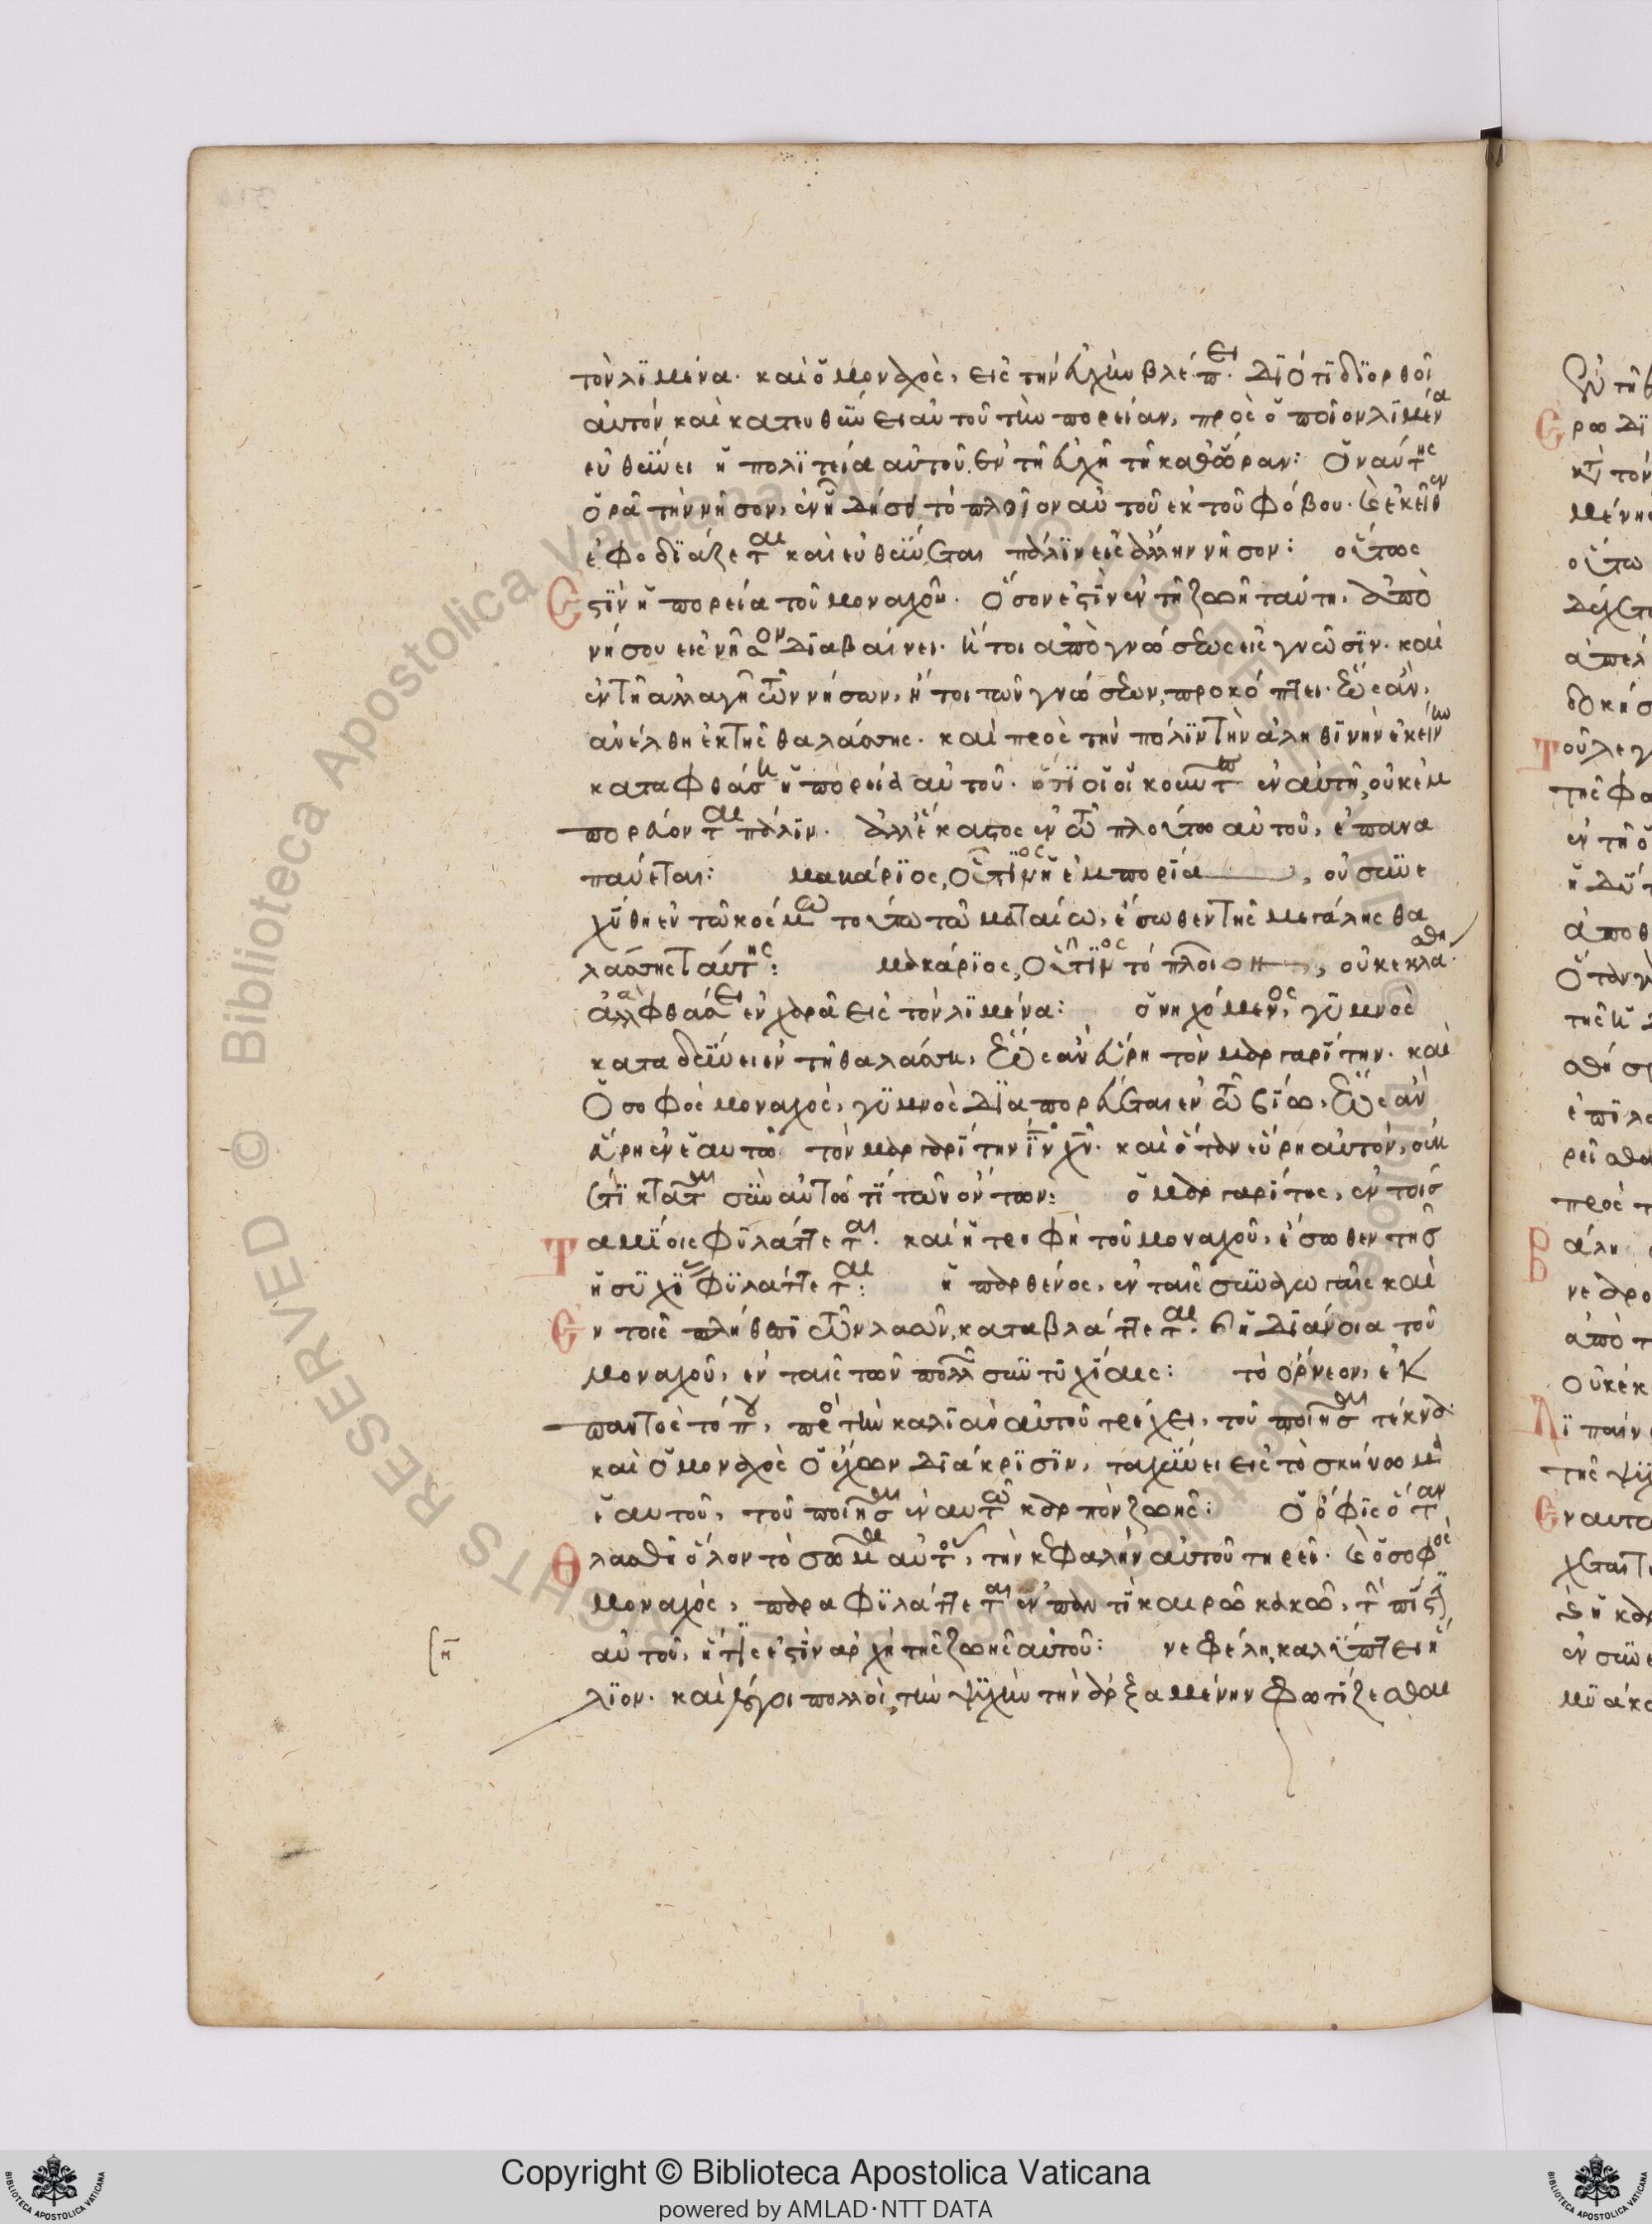 τὸν λϊμένα. καὶ ὁ μοναχὸς, εἰς τὴν εὐχὴν βλέπει. διότι διορθοῖ
αὐτὸν καὶ κατευθύνει αὐτοῦ τὴν πορείαν, πρὸς ὁποῖον λιμένα
εὐθύνει ἡ πολιτεία αὐτοῦ. ἐν τῇ εὐχῇ τῇ καθ ὥραν: Ὁ ναύτης
ὁρᾷ τὴν νῆσον, ἐν ᾗ δήσει τὸ πλοῖον αὐτοῦ ἐκ τοῦ φόβου. καὶ ἐκεῖθεν
ἐφοδιάζεται καὶ εὐθύνεται πάλιν εἰς ἄλλην νῆσον: οὕτως
Ἐστὶν ἡ πορεία τοῦ μοναχοῦ. Ὅσον ἐστὶν ἐν τῇ ζωῇ ταύτῃ. ἀπὸ
νήσου εἰς νῆσον διαβαίνει. ἤτοι ἀπὸ γνώσεως εἰς γνῶσιν. καὶ
ἐν τῇ ἀλλαγῇ τῶν νήσων, ἤτοι τῶν γνώσεων, προκόπτει. ἕως ἂν,
ἀνέλθῃ ἐκ τῆς θαλάσσης. καὶ πρὸς τὴν πόλιν τὴν ἀληθινὴν ἐκείνην
καταφθάσῃ ἡ πορεία αὐτοῦ. ὅτι οἱ οἰκοῦντες ἐν αὐτῇ, οὐκ ἐμ
πορεύονται πάλιν. ἀλλ ἕκαστος ἐν τῷ πλούτῳ αὐτοῦ, ἐπανα
παύεται: μακάριος, οὗτινος ἡ ἐμπορία, οὐ συνε
χύθη ἐν τῷ κόσμῳ τούτῳ τῷ ματαίῳ, ἔσωθεν τῆς μεγάλης θα
λάσσης ταύτης: μακάριος, οὗτινος τὸ πλοῖον, οὐκ ἐκλάσθη
ἀλλὰ φθάσει ἐν χαρᾷ εἰς τὸν λιμένα: ὁ νηχόμενος, γυμνὸς
καταδύνει ἐν τῇ θαλάσσῃ, ἕως ἂν εὕρῃ τὸν μαργαρίτην. καὶ
Ὁ σοφὸς μοναχὸς, γυμνὸς διαπορεύεται ἐν τῷ βίῳ, ἕως ἂν
εὕρῃ ἐν ἑαυτῷ τὸν μαργαρίτην ἰν χν. καὶ ὅταν εὕρῃ αὐτὸν, οὐκ
ἔτι κτᾶται σὺν αὐτῷ τὶ τῶν ὄντων: ὁ μαργαρίτης, ἐν τοῖς
Ταμίοις φυλάττεται. καὶ ἡ τρυφὴ τοῦ μοναχοῦ, ἔσωθεν τῆς
ἡσυχίας φυλάττεται: ἡ παρθένος, ἐν ταῖς συναγωγαῖς καὶ
Ἐν τοῖς πλήθεσι τῶν λαῶν, καταβλάπτεται. καὶ ἡ διάνοια τοῦ
μοναχοῦ, ἐν ταῖς τῶν πολλῶν συντυχίαις: τὸ ὄρνεον, ἐκ
παντὸς τόπου, πρὸς τὴν καλιὰν αὐτοῦ τρέχει, τοῦ ποιῆσαι τέκνα.
καὶ ὁ μοναχὸς ὁ ἔχων διάκρισιν, ταχύνει εἰς τὸ σκήνωμα
ἑαυτοῦ, τοῦ ποιῆσαι ἐν αὐτῷ καρπὸν ζωῆς: Ὁ ὄφις ὅταν
Θλασθῇ ὅλον τὸ σῶμα αὐτοῦ, τὴν κεφαλὴν αὐτοῦ τηρεῖ. καὶ ὁ σοφὸς
μοναχὸς, παραφυλάττεται ἐν παντὶ καιρῷ κακῷ, τὴν πίστιν
αὐτοῦ, ἥτις ἐστὶν ἀρχὴ τῆς ζωῆς αὐτοῦ: νεφέλη, καλύπτει ἥ
λιον. καὶ λόγοι πολλοὶ, τὴν ψυχὴν τὴν ἀρξαμένην φωτίζεσθαι